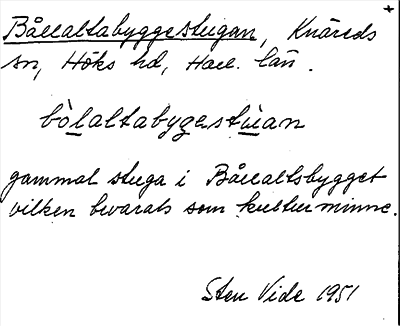 Bållaltabyggestugan, Knäreds
sn, Höks hd, Hall. län.
bòlaltabygestùan
gammal stuga i Bållaltsbygget
vilken bevarats som kulturminne.
Sten Vide 1951